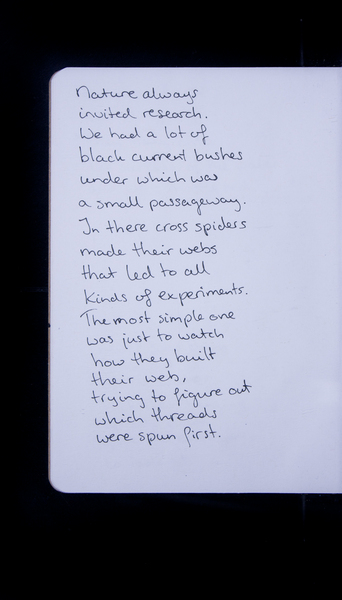 Nature always
invited research.
We had a lot of
black current bushes
under which was
a small passageway.
In there cross spiders
made their webs
that led to all
kinds of experiments.
The most simple one
was just to watch
how they built
their web,
trying to figure out
which threads
were spun first.